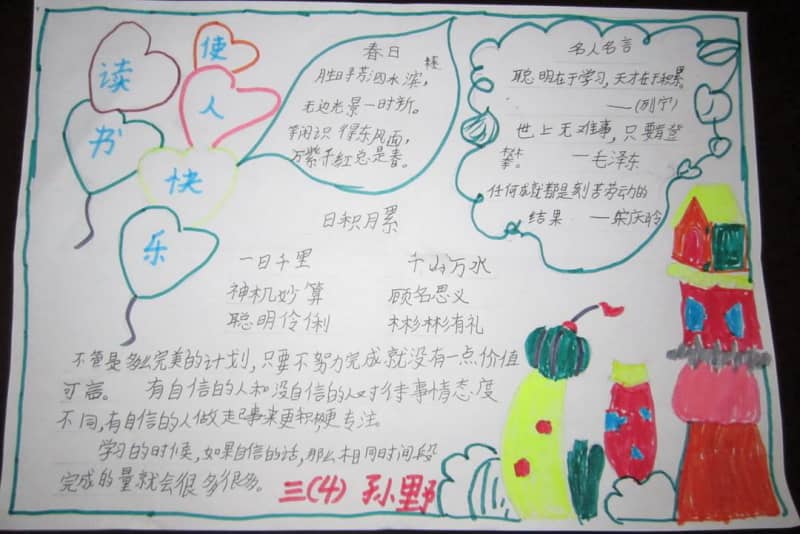 读书
使人
快乐
春日
胜日寻芳泗水滨,
无边光景一时新。
等闲识得东风面,
万紫千红总是春。
名人名言
聪明在于学习,天才在于积累。
——(列宁)
世上无难事,只要肯登
攀。 —毛泽东
任何成就都是刻苦劳动的
结果 ——宋庆龄
日积月累
一日千里 千山万水
神机妙算 顾名思义
聪明伶俐 彬彬有礼
不管是多么完美的计划,只要不努力完成就没有一点价值
可言。 有自信的人和没自信的人对待事情态度
不同,有自信的人做起事来更积极更专注。
学习的时候,如果自信的话,那么相同时间段
完成的量就会很多很多。
三(4) 孙野